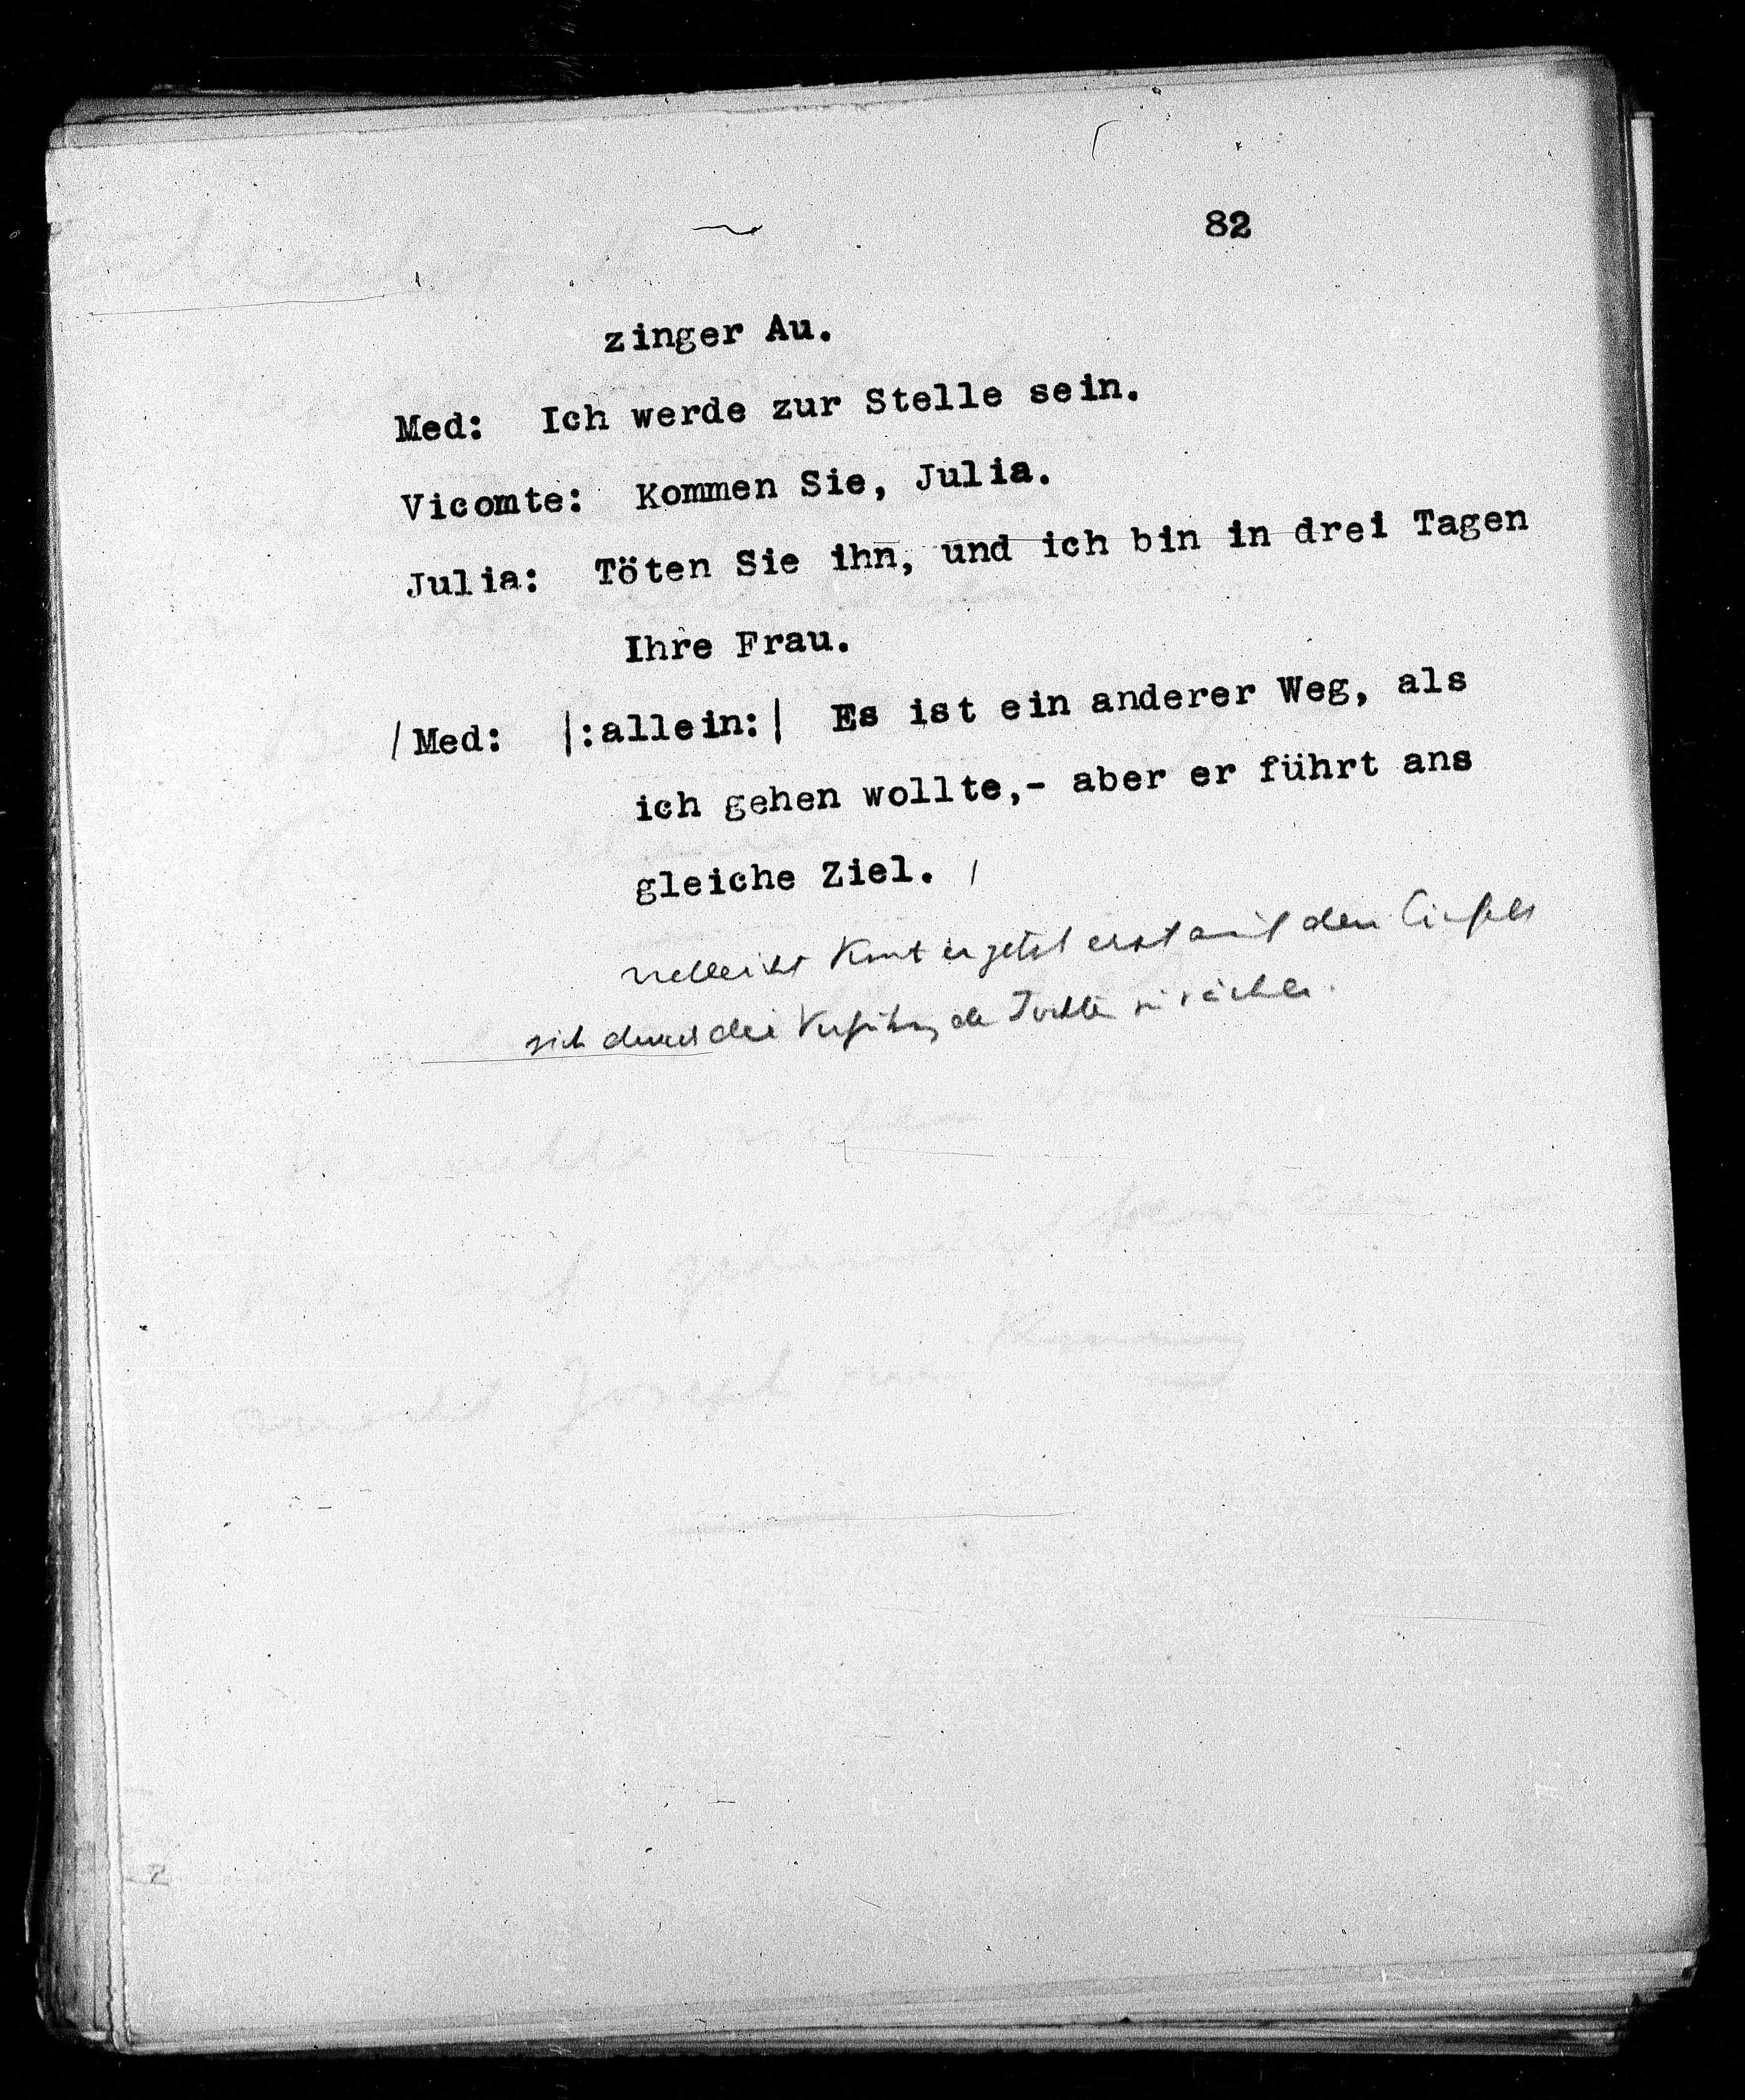 82
zinger Au.
Med: Ich werde zur Stelle sein.
Vicomte: Kommen Sie, Julia.
Julia: Töten Sie ihn, und ich bin in drei Tagen
Ihre Frau.
/Med: |:allein:| Es ist ein anderer Weg, als
ich gehen wollte,- aber er führt ans
gleiche Ziel. /
vielleicht er jetzt erst auf den
sich durch die der Tochter zu rächen.